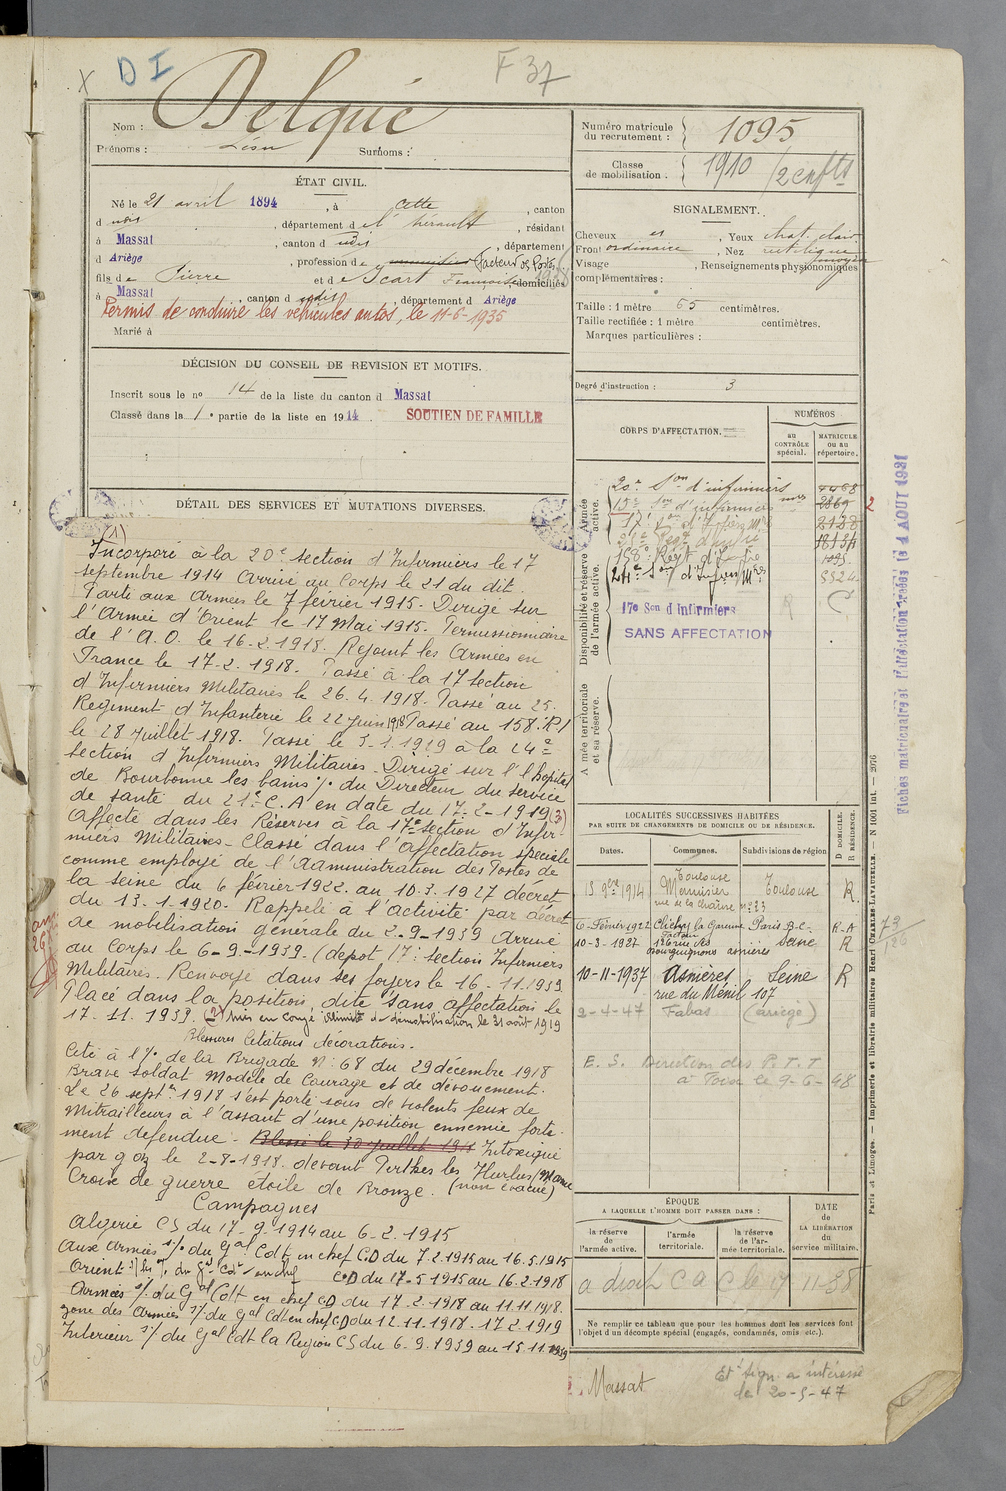 X D I
F 37
Nom : Delqué
Prénoms : Léon Surnoms :
Numéro matricule du recrutement : 1095
Classe de mobilisation . 1910 / 2 enfts
ÉTAT CIVIL.
Né le 21 avril 1894 , à Cette , canton
d udit , département de l'Hérault , résidant
à Massat , canton d udit , département
d Ariège , profession de Facteur des Postes
fils de Pierre et de Icart Françoise domiciliés
à Massat , canton d udit , département d Ariège
Permis de conduire les véhicules autos, le 11-6-1935
Marié à
SIGNALEMENT.
Cheveux , Yeux chat. clair
Front ordinaire , Nez rectiligne
Visage moyen , Renseignements physionomiques
complémentaires :
Taille : 1 mètre 65 centimètres.
Taille rectifiée : 1 mètre centimètres.
Marques particulières :
Degré d'instruction : 3
DÉCISION DU CONSEIL DE REVISION ET MOTIFS.
Inscrit sous le no 14 de la liste du canton d Massat
Classé dans la 1e partie de la liste en 1914 . SOUTIEN DE FAMILLE
DÉTAIL DES SERVICES ET MUTATIONS DIVERSES.
(1)
Incorporé à la 20e section d'Infirmiers le 17
septembre 1914 arrivé au Corps le 21 du dit.
Parti aux Armées le 7 février 1915. Dirigé sur
l'Armée d'Orient le 17 Mai 1915. Permissionnaire
de l'A.O. le 16.2.1918. Rejoint les Armées en
France le 17.2.1918. Passé à la 17 Section
d'Infirmiers Militaires le 26.4.1918. Passé au 25.
Régiment d'Infanterie le 22 Juin 1918 Passé au 158. R.I
le 28 Juillet 1918. Passé le 3.1.1919 à la 24e
Section d'Infirmiers Militaires. Dirigé sur l'hôpital
de Bourbonne les bains %. du Directeur du service
de santé du 21e C.A en date du 17-2-1919 (3)
Affecté dans les Réserves à la 17e section d'Infir-
miers Militaires - Classé dans l'affectation spéciale
comme employé de l'Administration des Postes de
la Seine du 6 février 1922. au 10.3.1927 décret
du 13.1.1920. Rappelé à l'activité par décret
de mobilisation générale du 2-9-1939 Arrivé
au Corps le 6-9-1939. (dépot 17e section Infirmiers
Militaires. Renvoyé dans ses foyers le 16.11.1939
Placé dans la position dite sans affectation le
17.11.1939. (2) Mis en congé illimité de démobilisation le 31 août 1919
Blessures Citations décorations.
Cité à l'%. de la Brigade N° 68 du 29 décembre 1918
Brave soldat Modèle de Courage et de dévouement.
Le 26 septre 1918 s'est porté sous de violents feux de
Mitrailleurs à l'assaut d'une position ennemie forte-
ment défendue - Blessé le 30 juillet 1918 Intoxiqué
par gaz le 2-8-1918. devant Perthes les Hurlus/Marne
Croix de guerre étoile de Bronze. (non évacué)
Campagnes
Algérie CS du 17.9.1914 au 6.2.1915
Aux Armées s/% du Gal Cdt en chef CD du 7.2.1915 au 16.5.1915
Orient s/les %. du Gal Cdt en chef CD du 17-5-1915 au 16.2.1918
Armées s/%. du Gal Cdt en chef CD du 17.2.1918 au 11.11.1918.
zone des Armées s/%. du Gal Cdt en chef CD du 12.11.1918-17.2.1919
Intérieur s/% du Gal Cdt la Région CS du 6.9.1939 au 15.11.1939
CORPS D'AFFECTATION.
NUMÉROS
au CONTRÔLE spécial.
MATRICULE ou au répertoire.
Armée active.
20e Son d'infirmiers 4468
15e Son d'infirmiers 2869 2
17e Son d'Infirm. Mres 2128
158e Régt d'Infie 1095
24e Son d'Infirm. Mres 5324
Disponibilité et réserve de l'armée active.
17e Son d'infirmiers R
SANS AFFECTATION
Armée territoriale et sa réserve.
LOCALITÉS SUCCESSIVES HABITÉES
PAR SUITE DE CHANGEMENTS DE DOMICILE OU DE RÉSIDENCE.
Dates. Communes. Subdivisions de région
D DOMICILE. R RÉSIDENCE.
15 9bre 1914 Toulouse Menuisier rue de la Chaîne no 23 Toulouse R.
6-Février-1922 Clichy la Garenne Facteur Paris B.C. R.A
10-3-1927 126 rue des Bourguignons Asnières Seine R
10-11-1937 Asnières Seine R
rue du Ménil 107
2-4-47 Fabas (Ariège)
E. S. Direction des P.T.T
à Foix le 9-6-48
ÉPOQUE
A LAQUELLE L'HOMME DOIT PASSER DANS :
la réserve de l'armée active.
l'armée territoriale.
la réserve de l'armée territoriale.
DATE de LA LIBÉRATION du service militaire.
a droit C a C le 17 11-38
Ne remplir ce tableau que pour les hommes dont les services font
l'objet d'un décompte spécial (engagés, condamnés, omis etc.).
Massat
Et. Sign. a intéressé
le 20-5-47
Fiches matricule et d'affectation créées le 4 AOUT 1931
73/126
Paris et Limoges. — Imprimerie et librairie militaires Henri CHARLES-LAVAUZELLE. — N 1001 int. — 2076